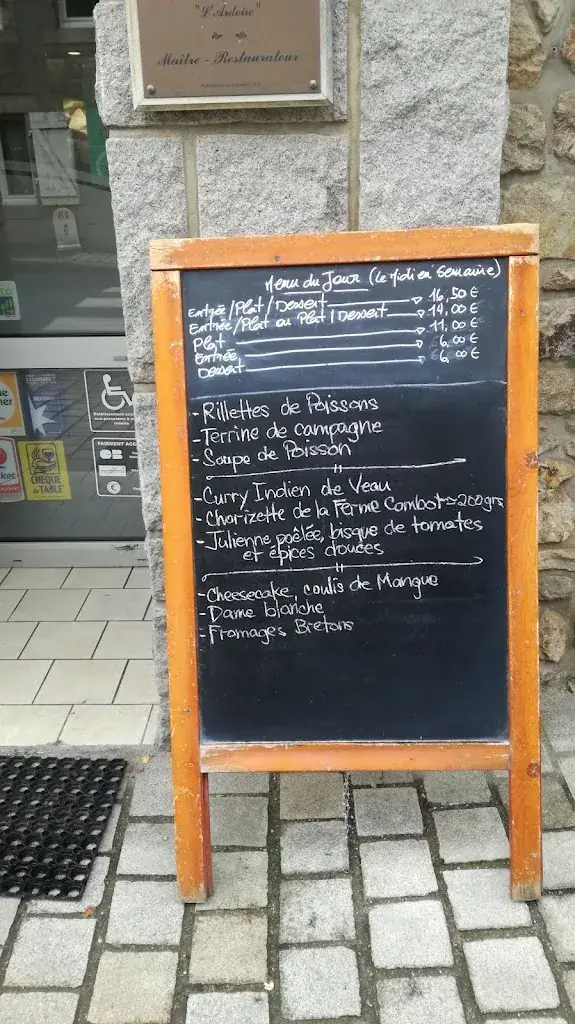 "L'Ardoise"
Maître - Restaurateur
Menu du Jour (le Midi en Semaine)
Entrée/Plat/Dessert 16,50 €
Entrée/Plat ou Plat/Dessert 14,00 €
Plat 11,00 €
Entrée 6,00 €
Dessert 6,00 €
- Rillettes de Poissons
- Terrine de campagne
- Soupe de Poisson
- Curry Indien de Veau
- Chorizette de la Ferme Combot ≃ 200grs
- Julienne poêlée, bisque de tomates
et épices douces
- Cheesecake, coulis de Mangue
- Dame blanche
- Fromages Bretons
PAIEMENT ACC
CHÈQUE
de TABLE